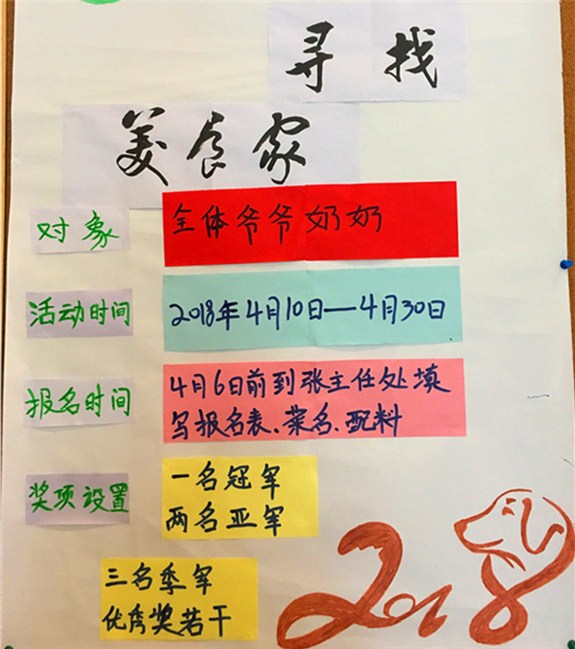 寻找
美食家
对象
全体爷爷奶奶
活动时间
2018年4月10日—4月30日
报名时间
4月6日前到张主任处填
写报名表、菜名、配料
奖项设置
一名冠军
两名亚军
三名季军
优秀奖若干
2018